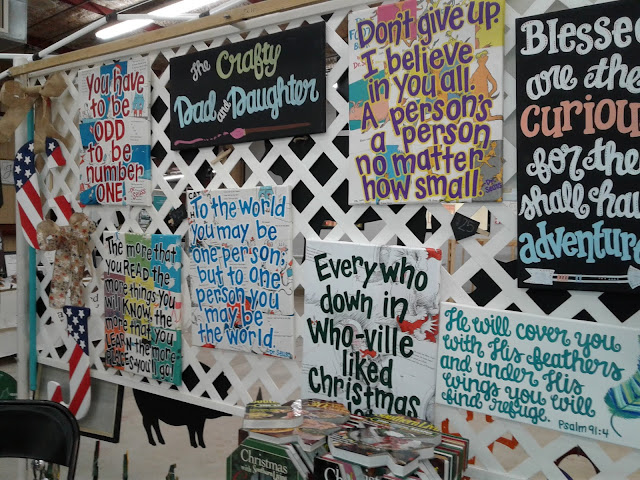 You have
to be
ODD
to be
number
ONE.
The Crafty
Dad and Daughter
Don't give up.
I believe
in you all.
A person's
a person
no matter
how small.
Blessed
are the
curious
for the
shall have
adventure
To the world
you may be
one person;
but to one
person you
may be
the world.
The more that
you READ the
more things you
will KNOW. The
more that you
LEARN the more
PLACES you'll go!
Every who
down in
who-ville
liked
Christmas
He will cover you
with His feathers
and under His
wings you will
find refuge.
Psalm 91:4
Christmas